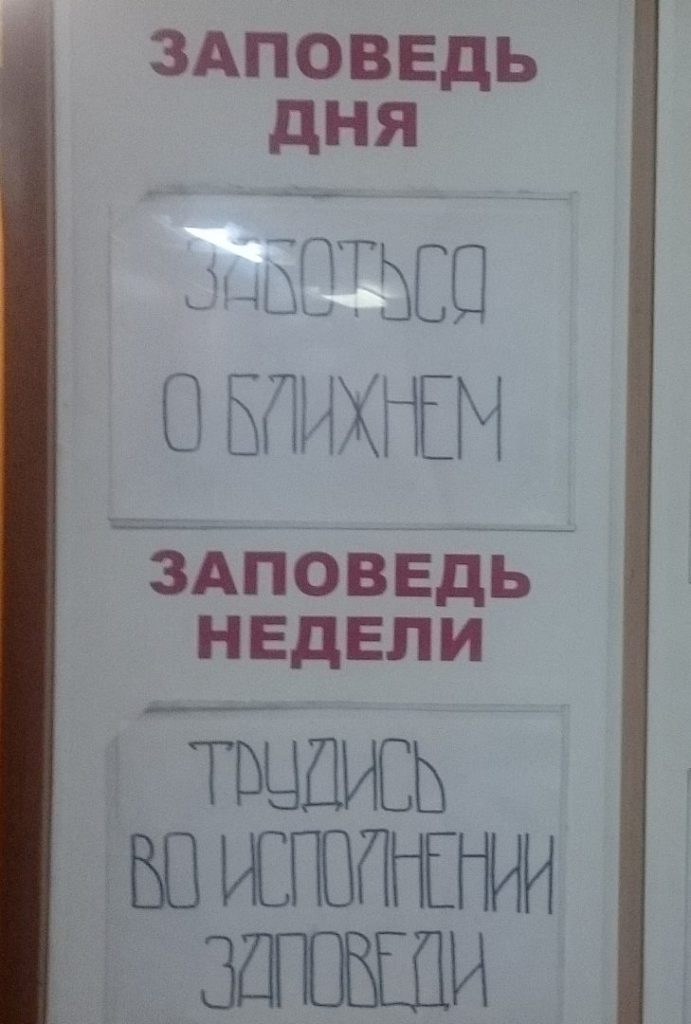 ЗАПОВЕДЬ
ДНЯ
ЗАБОТЬСЯ
О БЛИЖНЕМ
ЗАПОВЕДЬ
НЕДЕЛИ
ТРУДИСЬ
ВО ИСПОЛНЕНИИ
ЗАПОВЕДИ